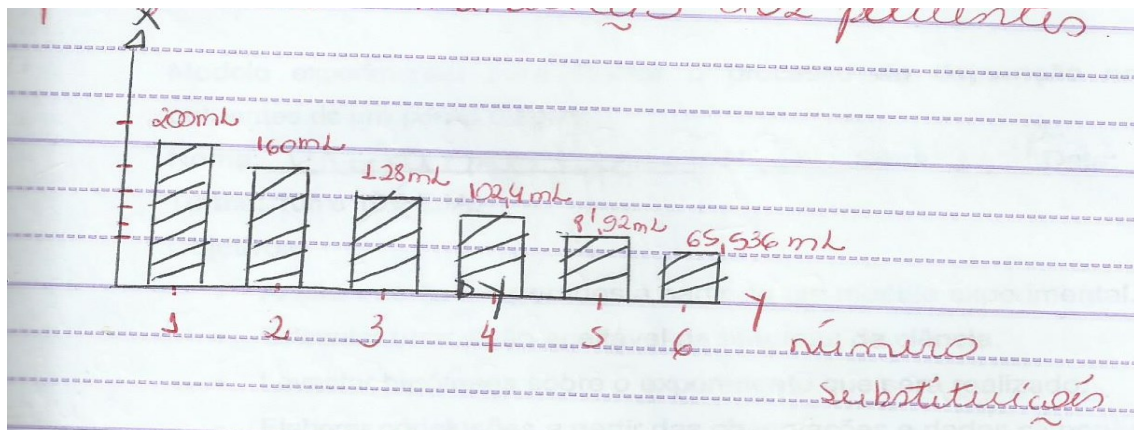 dos pacientes
X
200mL
160mL
128mL
102,4mL
81,92mL
65,536 mL
1 2 3 4 5 6 Y número
substituições